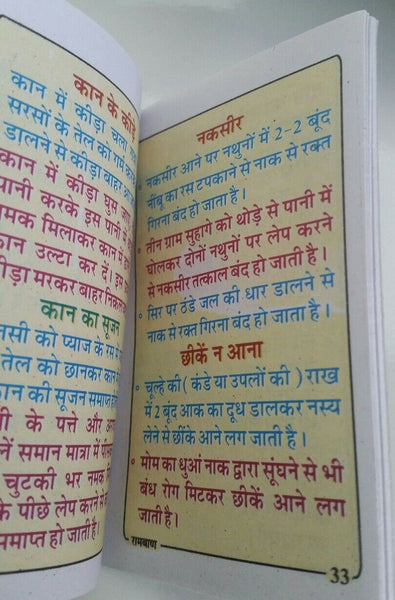 कान के कीड़े
कान में कीड़ा चला
सरसों के तेल को गर्म
डालने से कीड़ा बाहर
कान में कीड़ा घुस जाए
पानी करके इस पानी
नमक मिलाकर कान में
कान उल्टा कर दें। इस
कीड़ा मरकर बाहर
कान का सूजन
को प्याज के रस में
तेल को छानकर कान
कान की सूजन समाप्त
के पत्ते और
समान मात्रा में
चुटकी भर नमक
के पीछे लेप करने से
समाप्त हो जाती है।
नकसीर
• नकसीर आने पर नथुनों में 2-2 बूंद
नींबू का रस टपकाने से नाक से रक्त
गिरना बंद हो जाता है।
• तीन ग्राम सुहागे को थोड़े से पानी में
घोलकर दोनों नथुनों पर लेप करने
से नकसीर तत्काल बंद हो जाती है।
• सिर पर ठंडे जल की धार डालने से
नाक से रक्त गिरना बंद हो जाता है।
छीकें न आना
• चूल्हे की ( कंडे या उपलों की ) राख
में 2 बूंद आक का दूध डालकर नस्य
लेने से छींके आने लग जाती है।
• मोम का धुआं नाक द्वारा सूंघने से भी
बंध रोग मिटकर छीकें आने लग
जाती है।
रामबाण
33